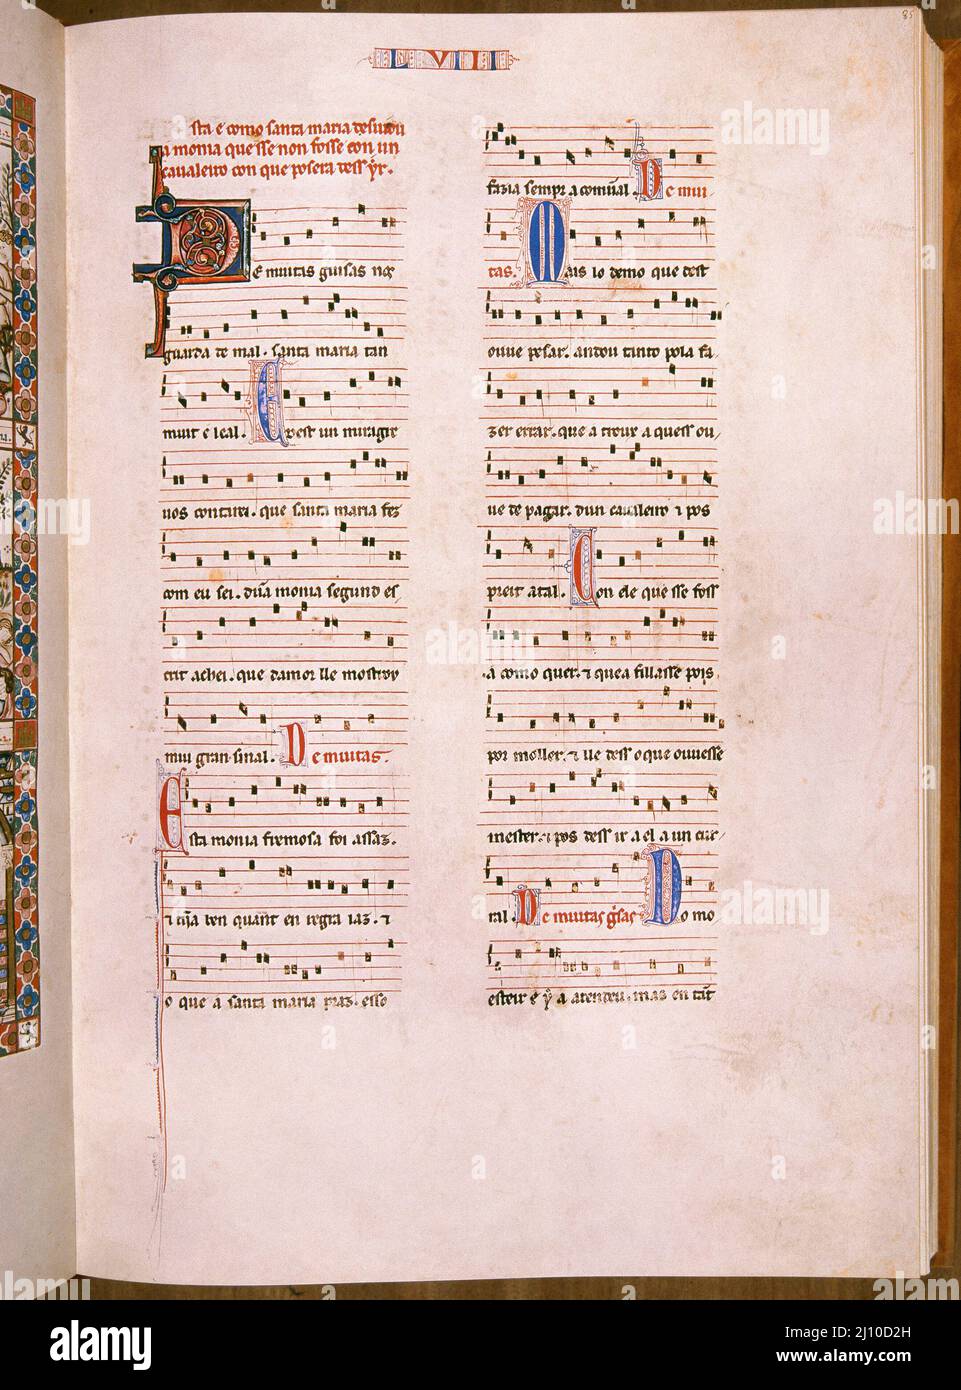 85
LVIII
sta e como santa maria desuiou
a monia que sse non fosse con un
caualeiro con que posera dess yr.
E muitas guisas nos
guarda de mal. santa maria tan
muit e leal. E dest un miragre
uos contarei. que santa maria fez
com eu sei. dũa monia segund es
crit achei. que damor lle mostrou
mui gran sinal. De muitas.
Esta monia fremosa foi assaz.
t tĩia ben quant en regra iaz. t
o que a santa maria praz. esso
fazia sempr a comũal. De mui
tas. Mais lo demo que dest
ouue pesar. andou tanto pola fa
zer errar. que a troux a quess ou
ue de pagar. dun caualeiro t pos
preit atal. Con ele que sse foss
a como quer. t que a fillasse pois
por moller. t lle dess o que ouuesse
mester. t pos dess ir a el a un cur
ral. De muitas gisas Do mo
esteir e y a atendeu. mas en tant
alamy
Image ID: 2J10D2H
www.alamy.com